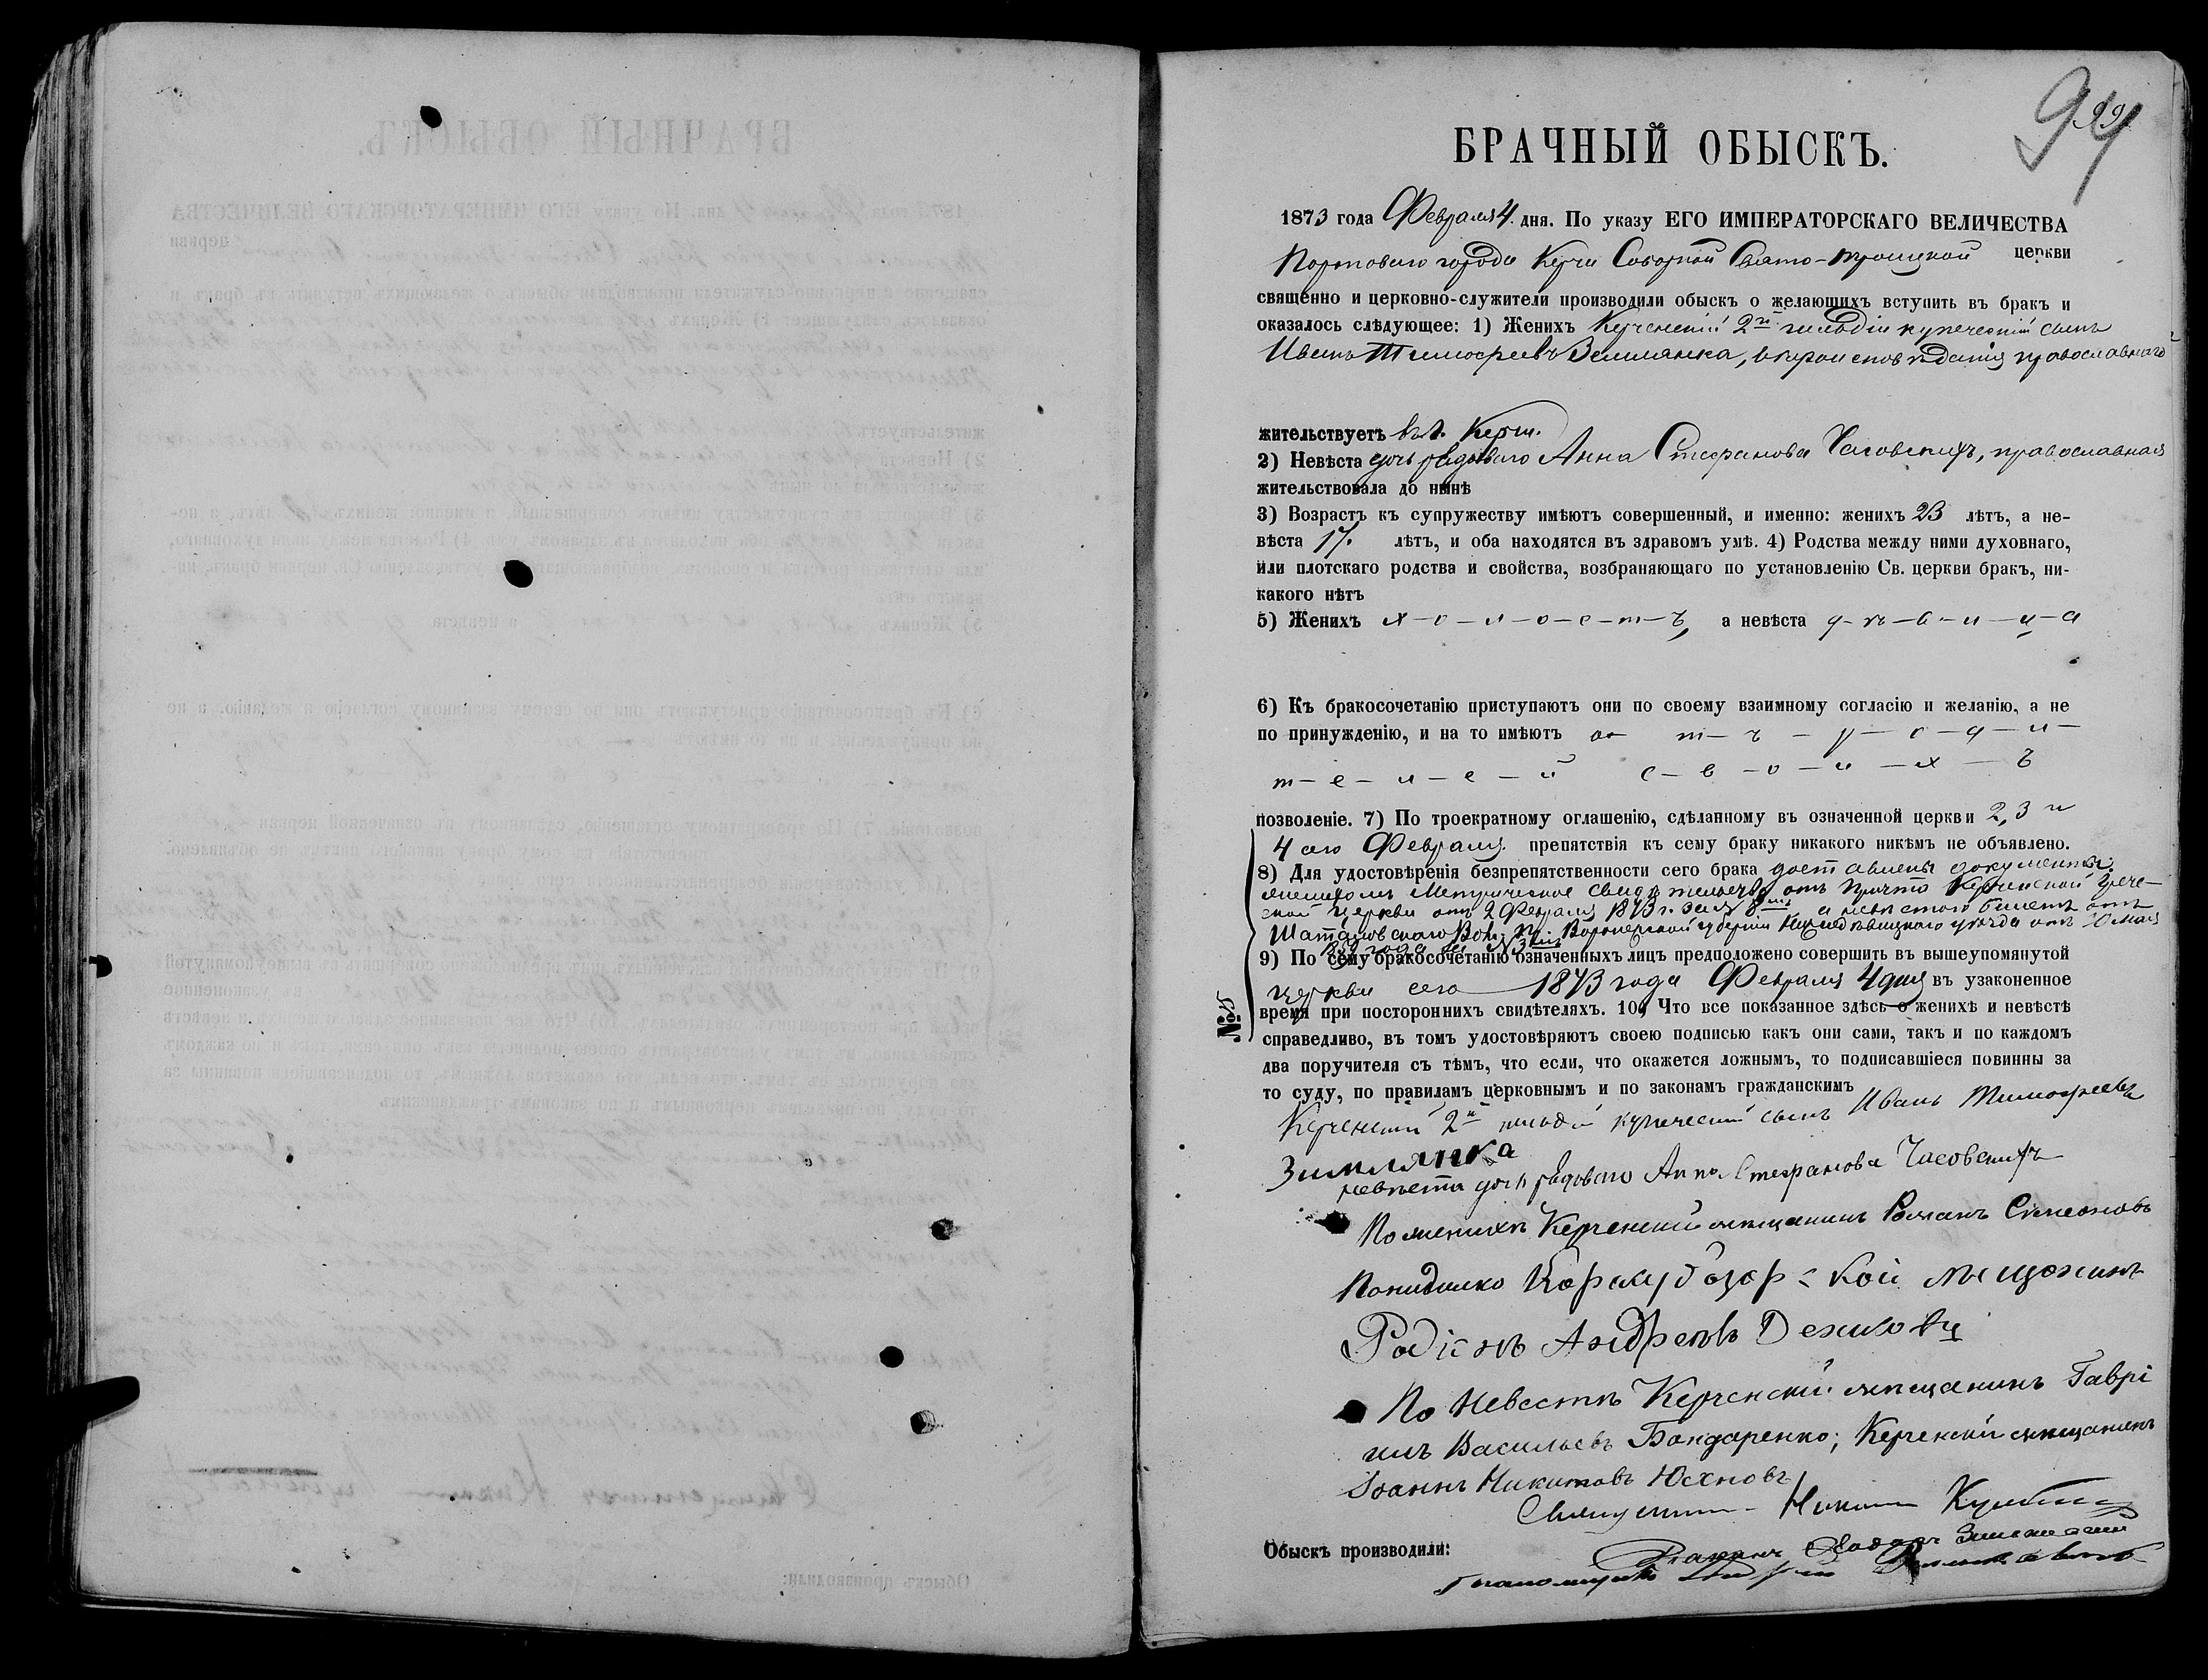 94
99
БРАЧНЫЙ ОБЫСКЪ.
1873 года Февраля 4. дня. По указу ЕГО ИМПЕРАТОРСКАГО ВЕЛИЧЕСТВА
Портоваго города Керчи Соборной Свято-Троицкой церкви
священно и церковно-служители производили обыскъ о желающихъ вступить въ бракъ и
оказалось слѣдующее: 1) Женихъ Керченскій 2й гильдіи купеческій сынъ
Иванъ Тимофеевъ Зимлянка, вѣроисповѣданія православнаго
жительствуетъ въ г. Керчи.
2) Невѣста дочь рядоваго Анна Стефанова Часовскихъ, православная
жительствовала до нынѣ
3) Возрастъ къ супружеству имѣютъ совершенный, и именно: женихъ 23 лѣтъ, а не-
вѣста 17. лѣтъ, и оба находятся въ здравомъ умѣ. 4) Родства между ними духовнаго,
или плотскаго родства и свойства, возбраняющаго по установленію Св. церкви бракъ, ни-
какого нѣтъ
5) Женихъ х-о-л-о-с-т-ъ, а невѣста д-ѣ-в-и-ц-а
6) Къ бракосочетанію приступаютъ они по своему взаимному согласію и желанію, а не
по принужденію, и на то имѣютъ о- т-ъ - р-о-д-и-
т-е-л-е-й с-в-о-и-х-ъ
позволеніе. 7) По троекратному оглашенію, сдѣланному въ означенной церкви 2, 3 и
4 сего Февраля препятствія къ сему браку никакого никѣмъ не объявлено.
8) Для удостовѣренія безпрепятственности сего брака доставлены документы:
женихомъ Метрическое свидѣтельство отъ причта Керченской Грече-
ской церкви отъ 2 Февраля 1873 г. за № 8мъ а невѣстою билетъ отъ
Шаталовскаго Вол. Пр. Воронежской губерніи Нижнедѣвицкаго уѣзда отъ мая
года за №
9) По сему бракосочетанію означенныхъ лицъ предположено совершить въ вышеупомянутой
церкви сего 1873 года Февраля 4 дня въ узаконенное
№:
время при постороннихъ свидѣтеляхъ. 10) Что все показанное здѣсь о женихѣ и невѣстѣ
справедливо, въ томъ удостовѣряютъ своею подписью какъ они сами, такъ и по каждомъ
два поручителя съ тѣмъ, что если, что окажется ложнымъ, то подписавшіеся повинны за
то суду, по правиламъ церковнымъ и по законамъ гражданскимъ
Керченскій 2й гильдіи купеческій сынъ Иванъ Тимофеевъ
Зимлянка
невѣста дочь рядоваго Анна Стефанова Часовскихъ
По женихѣ Керченскій мѣщанинъ Романъ Симеоновъ
мещонинъ
Родіонъ Андреевъ
По Невестѣ Керченскій мѣщанинъ Гаврі
илъ Васильевъ Бондаренко; Керченскій мѣщанинъ
Іоаннъ Никитовъ Юхновъ
Священникъ
Обыскъ производили:
Діаконъ